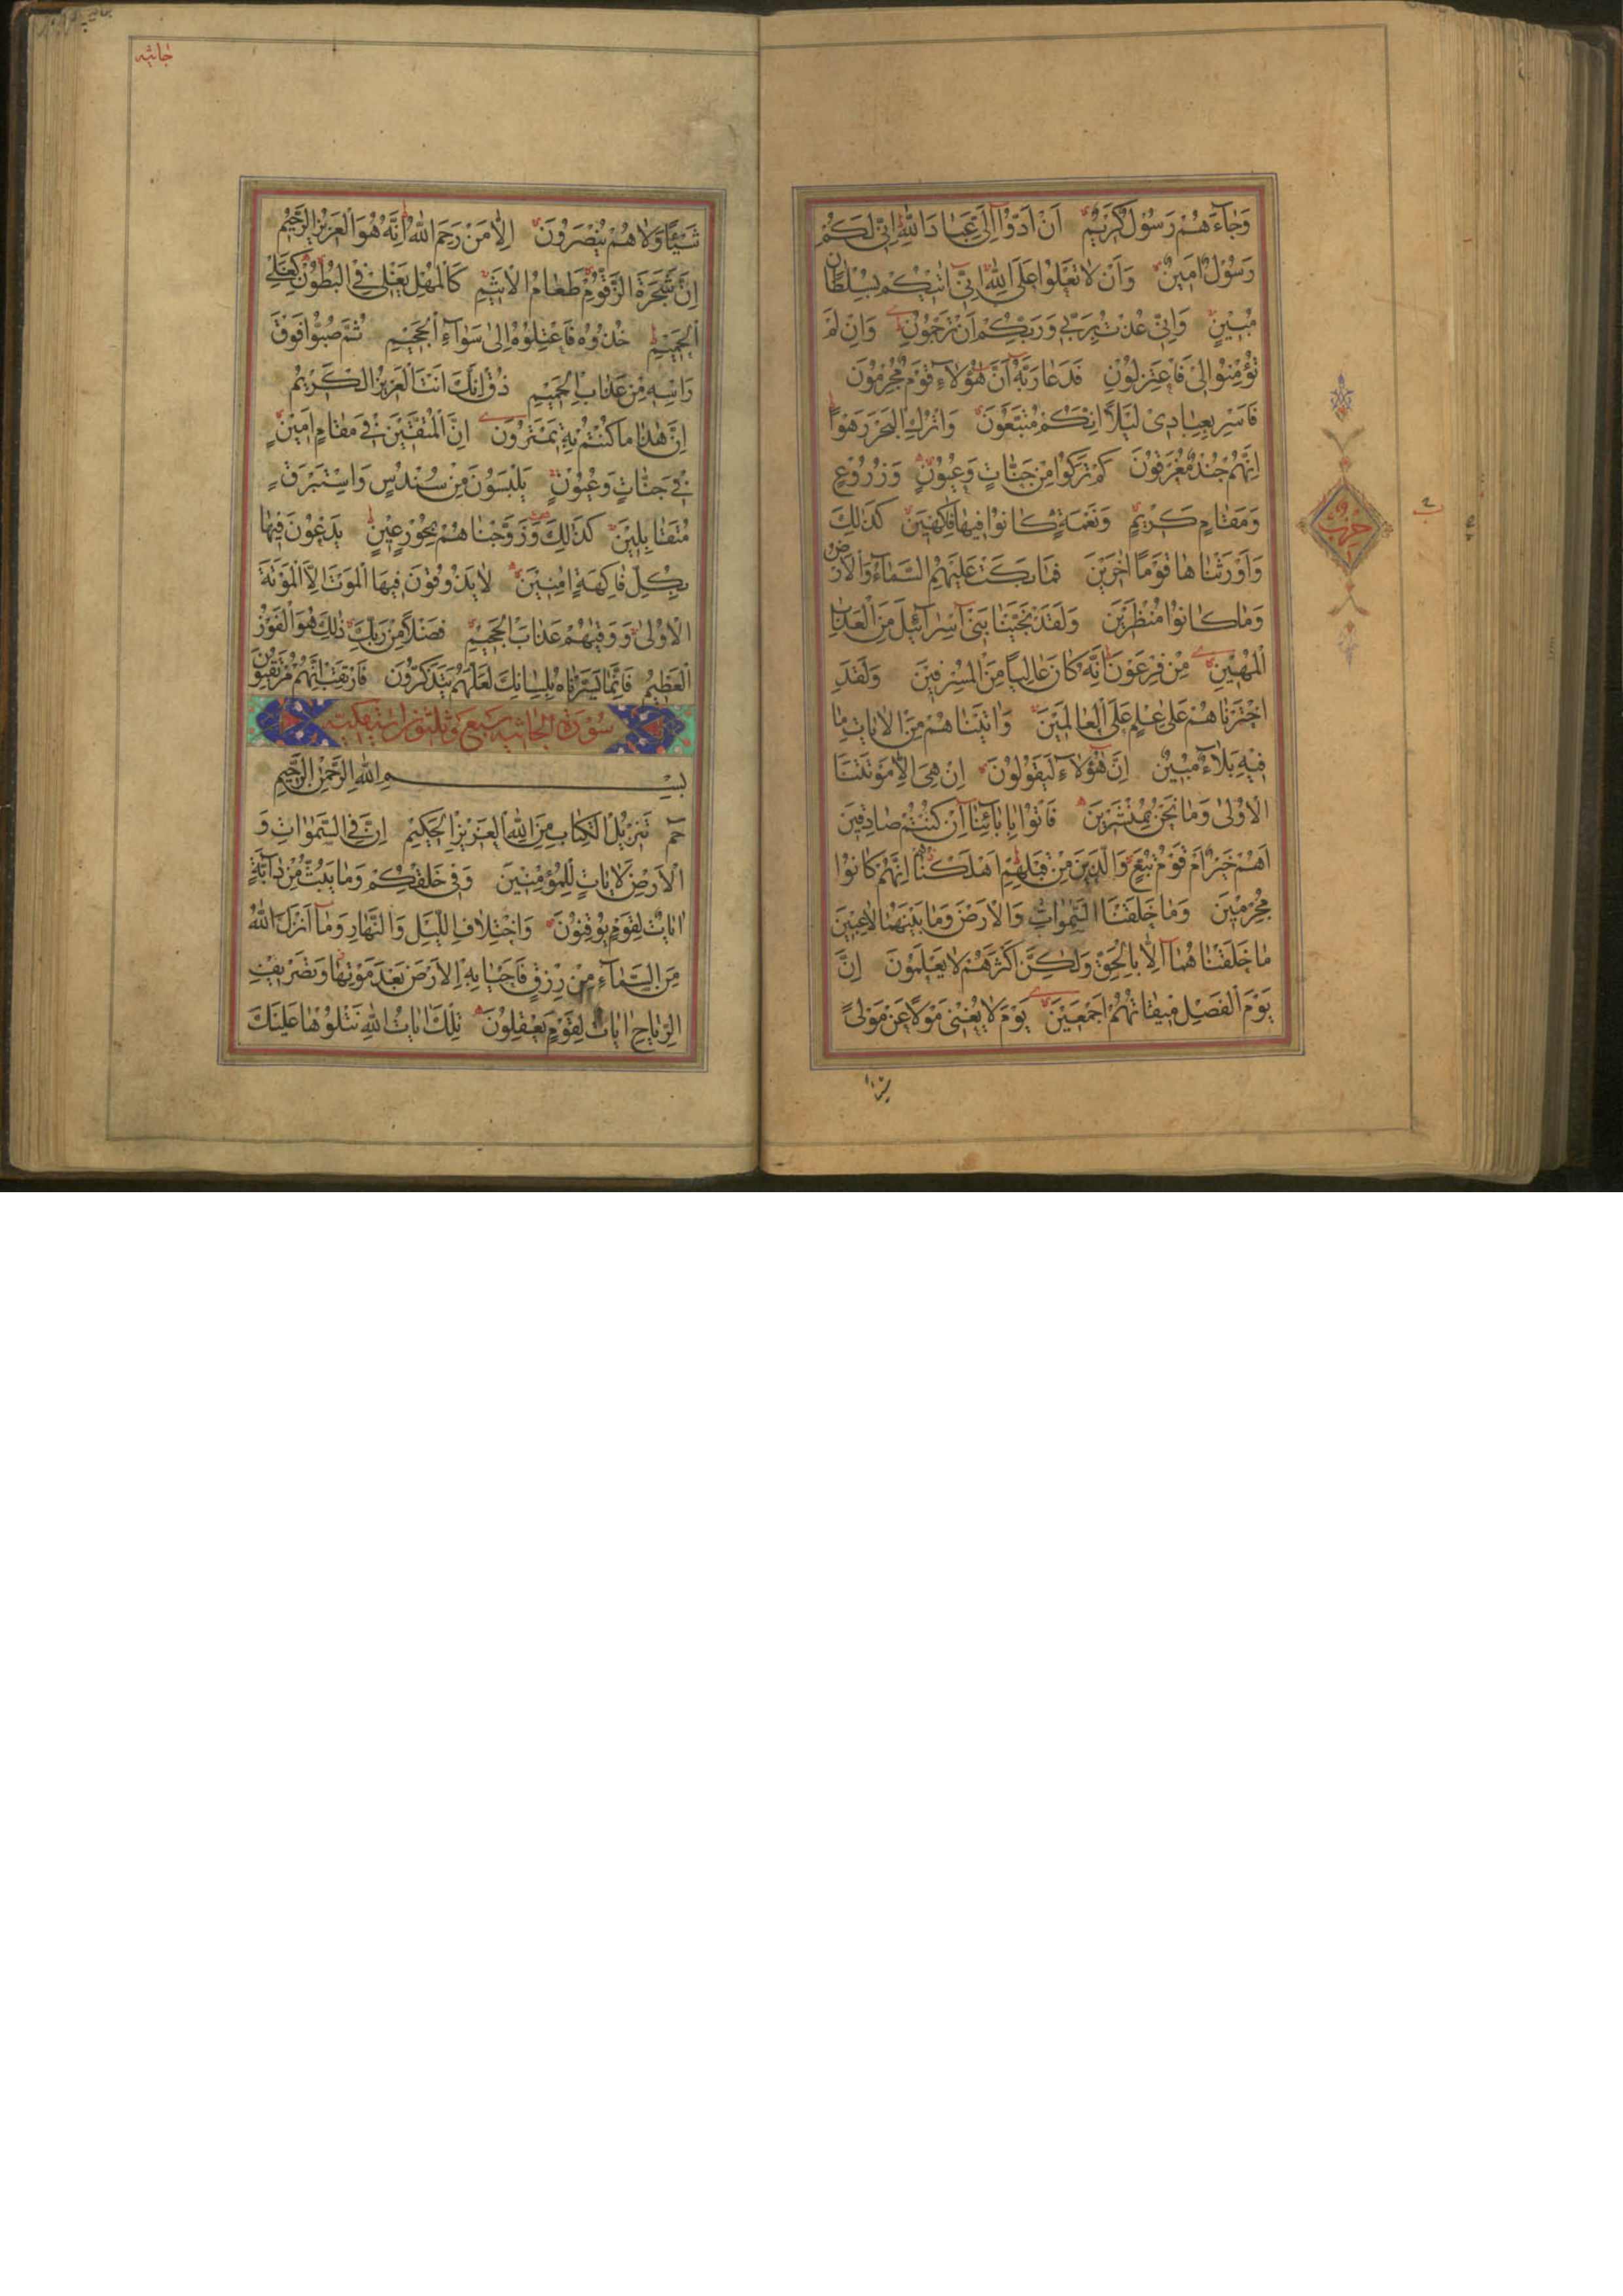 وَجَاءَهُمْ رَسُولٌ كَرِيمٌ أَنْ أَدُّوا إِلَيَّ عِبَادَ اللهِ إِنِّي لَكُمْ
رَسُولٌ أَمِينٌ وَأَنْ لَا تَعْلُوا عَلَى اللهِ إِنِّي اٰتِيكُمْ بِسُلْطَانٍ
مُبِينٍ وَإِنِّي عُذْتُ بِرَبِّي وَرَبِّكُمْ أَنْ تَرْجُمُونِ وَإِنْ لَمْ
تُؤْمِنُوا لِي فَاعْتَزِلُونِ فَدَعَا رَبَّهُ أَنَّ هٰؤُلَاءِ قَوْمٌ مُجْرِمُونَ
فَأَسْرِ بِعِبَادِي لَيْلًا إِنَّكُمْ مُتَّبَعُونَ وَاتْرُكِ الْبَحْرَ رَهْوًا
إِنَّهُمْ جُنْدٌ مُغْرَقُونَ كَمْ تَرَكُوا مِنْ جَنَّاتٍ وَعُيُونٍ وَزُرُوعٍ
وَمَقَامٍ كَرِيمٍ وَنَعْمَةٍ كَانُوا فِيهَا فَاكِهِينَ كَذٰلِكَ
وَأَوْرَثْنَاهَا قَوْمًا اٰخَرِينَ فَمَا بَكَتْ عَلَيْهِمُ السَّمَاءُ وَالْأَرْضُ
وَمَا كَانُوا مُنْظَرِينَ وَلَقَدْ نَجَّيْنَا بَنِي إِسْرَائِيلَ مِنَ الْعَذَابِ
الْمُهِينِ مِنْ فِرْعَوْنَ إِنَّهُ كَانَ عَالِيًا مِنَ الْمُسْرِفِينَ وَلَقَدِ
اخْتَرْنَاهُمْ عَلَى عِلْمٍ عَلَى الْعَالَمِينَ وَاٰتَيْنَاهُمْ مِنَ الْاٰيَاتِ مَا
فِيهِ بَلَاءٌ مُبِينٌ إِنَّ هٰؤُلَاءِ لَيَقُولُونَ إِنْ هِيَ إِلَّا مَوْتَتُنَا
الْأُولَى وَمَا نَحْنُ بِمُنْشَرِينَ فَأْتُوا بِاٰبَائِنَا إِنْ كُنْتُمْ صَادِقِينَ
أَهُمْ خَيْرٌ أَمْ قَوْمُ تُبَّعٍ وَالَّذِينَ مِنْ قَبْلِهِمْ أَهْلَكْنَاهُمْ إِنَّهُمْ كَانُوا
مُجْرِمِينَ وَمَا خَلَقْنَا السَّمٰوَاتِ وَالْأَرْضَ وَمَا بَيْنَهُمَا لَاعِبِينَ
مَا خَلَقْنَاهُمَا إِلَّا بِالْحَقِّ وَلٰكِنَّ أَكْثَرَهُمْ لَا يَعْلَمُونَ إِنَّ
يَوْمَ الْفَصْلِ مِيقَاتُهُمْ أَجْمَعِينَ يَوْمَ لَا يُغْنِي مَوْلًى عَنْ مَوْلًى
شيئا
حزب
جاثیه
شَيْئًا وَلَا هُمْ يُنْصَرُونَ إِلَّا مَنْ رَحِمَ اللهُ إِنَّهُ هُوَ الْعَزِيزُ الرَّحِيمُ
إِنَّ شَجَرَةَ الزَّقُّومِ طَعَامُ الْأَثِيمِ كَالْمُهْلِ يَغْلِي فِي الْبُطُونِ كَغَلْيِ
الْحَمِيمِ خُذُوهُ فَاعْتِلُوهُ إِلَى سَوَاءِ الْجَحِيمِ ثُمَّ صُبُّوا فَوْقَ
رَأْسِهِ مِنْ عَذَابِ الْحَمِيمِ ذُقْ إِنَّكَ أَنْتَ الْعَزِيزُ الْكَرِيمُ
إِنَّ هٰذَا مَا كُنْتُمْ بِهِ تَمْتَرُونَ إِنَّ الْمُتَّقِينَ فِي مَقَامٍ أَمِينٍ
فِي جَنَّاتٍ وَعُيُونٍ يَلْبَسُونَ مِنْ سُنْدُسٍ وَإِسْتَبْرَقٍ
مُتَقَابِلِينَ كَذٰلِكَ وَزَوَّجْنَاهُمْ بِحُورٍ عِينٍ يَدْعُونَ فِيهَا
بِكُلِّ فَاكِهَةٍ اٰمِنِينَ لَا يَذُوقُونَ فِيهَا الْمَوْتَ إِلَّا الْمَوْتَةَ
الْأُولَى وَوَقٰيهُمْ عَذَابَ الْجَحِيمِ فَضْلًا مِنْ رَبِّكَ ذٰلِكَ هُوَ الْفَوْزُ
الْعَظِيمُ فَإِنَّمَا يَسَّرْنَاهُ بِلِسَانِكَ لَعَلَّهُمْ يَتَذَكَّرُونَ فَارْتَقِبْ إِنَّهُمْ مُرْتَقِبُونَ
سورة الجاثیه سبع وثلثون ایة مکیة
بِسْمِ اللهِ الرَّحْمٰنِ الرَّحِيمِ
حم تَنْزِيلُ الْكِتَابِ مِنَ اللهِ الْعَزِيزِ الْحَكِيمِ إِنَّ فِي السَّمٰوَاتِ وَ
الْأَرْضِ لَاٰيَاتٍ لِلْمُؤْمِنِينَ وَفِي خَلْقِكُمْ وَمَا يَبُثُّ مِنْ دَابَّةٍ
اٰيَاتٌ لِقَوْمٍ يُوقِنُونَ وَاخْتِلَافِ اللَّيْلِ وَالنَّهَارِ وَمَا أَنْزَلَ اللهُ
مِنَ السَّمَاءِ مِنْ رِزْقٍ فَأَحْيَا بِهِ الْأَرْضَ بَعْدَ مَوْتِهَا وَتَصْرِيفِ
الرِّيَاحِ اٰيَاتٌ لِقَوْمٍ يَعْقِلُونَ تِلْكَ اٰيَاتُ اللهِ نَتْلُوهَا عَلَيْكَ